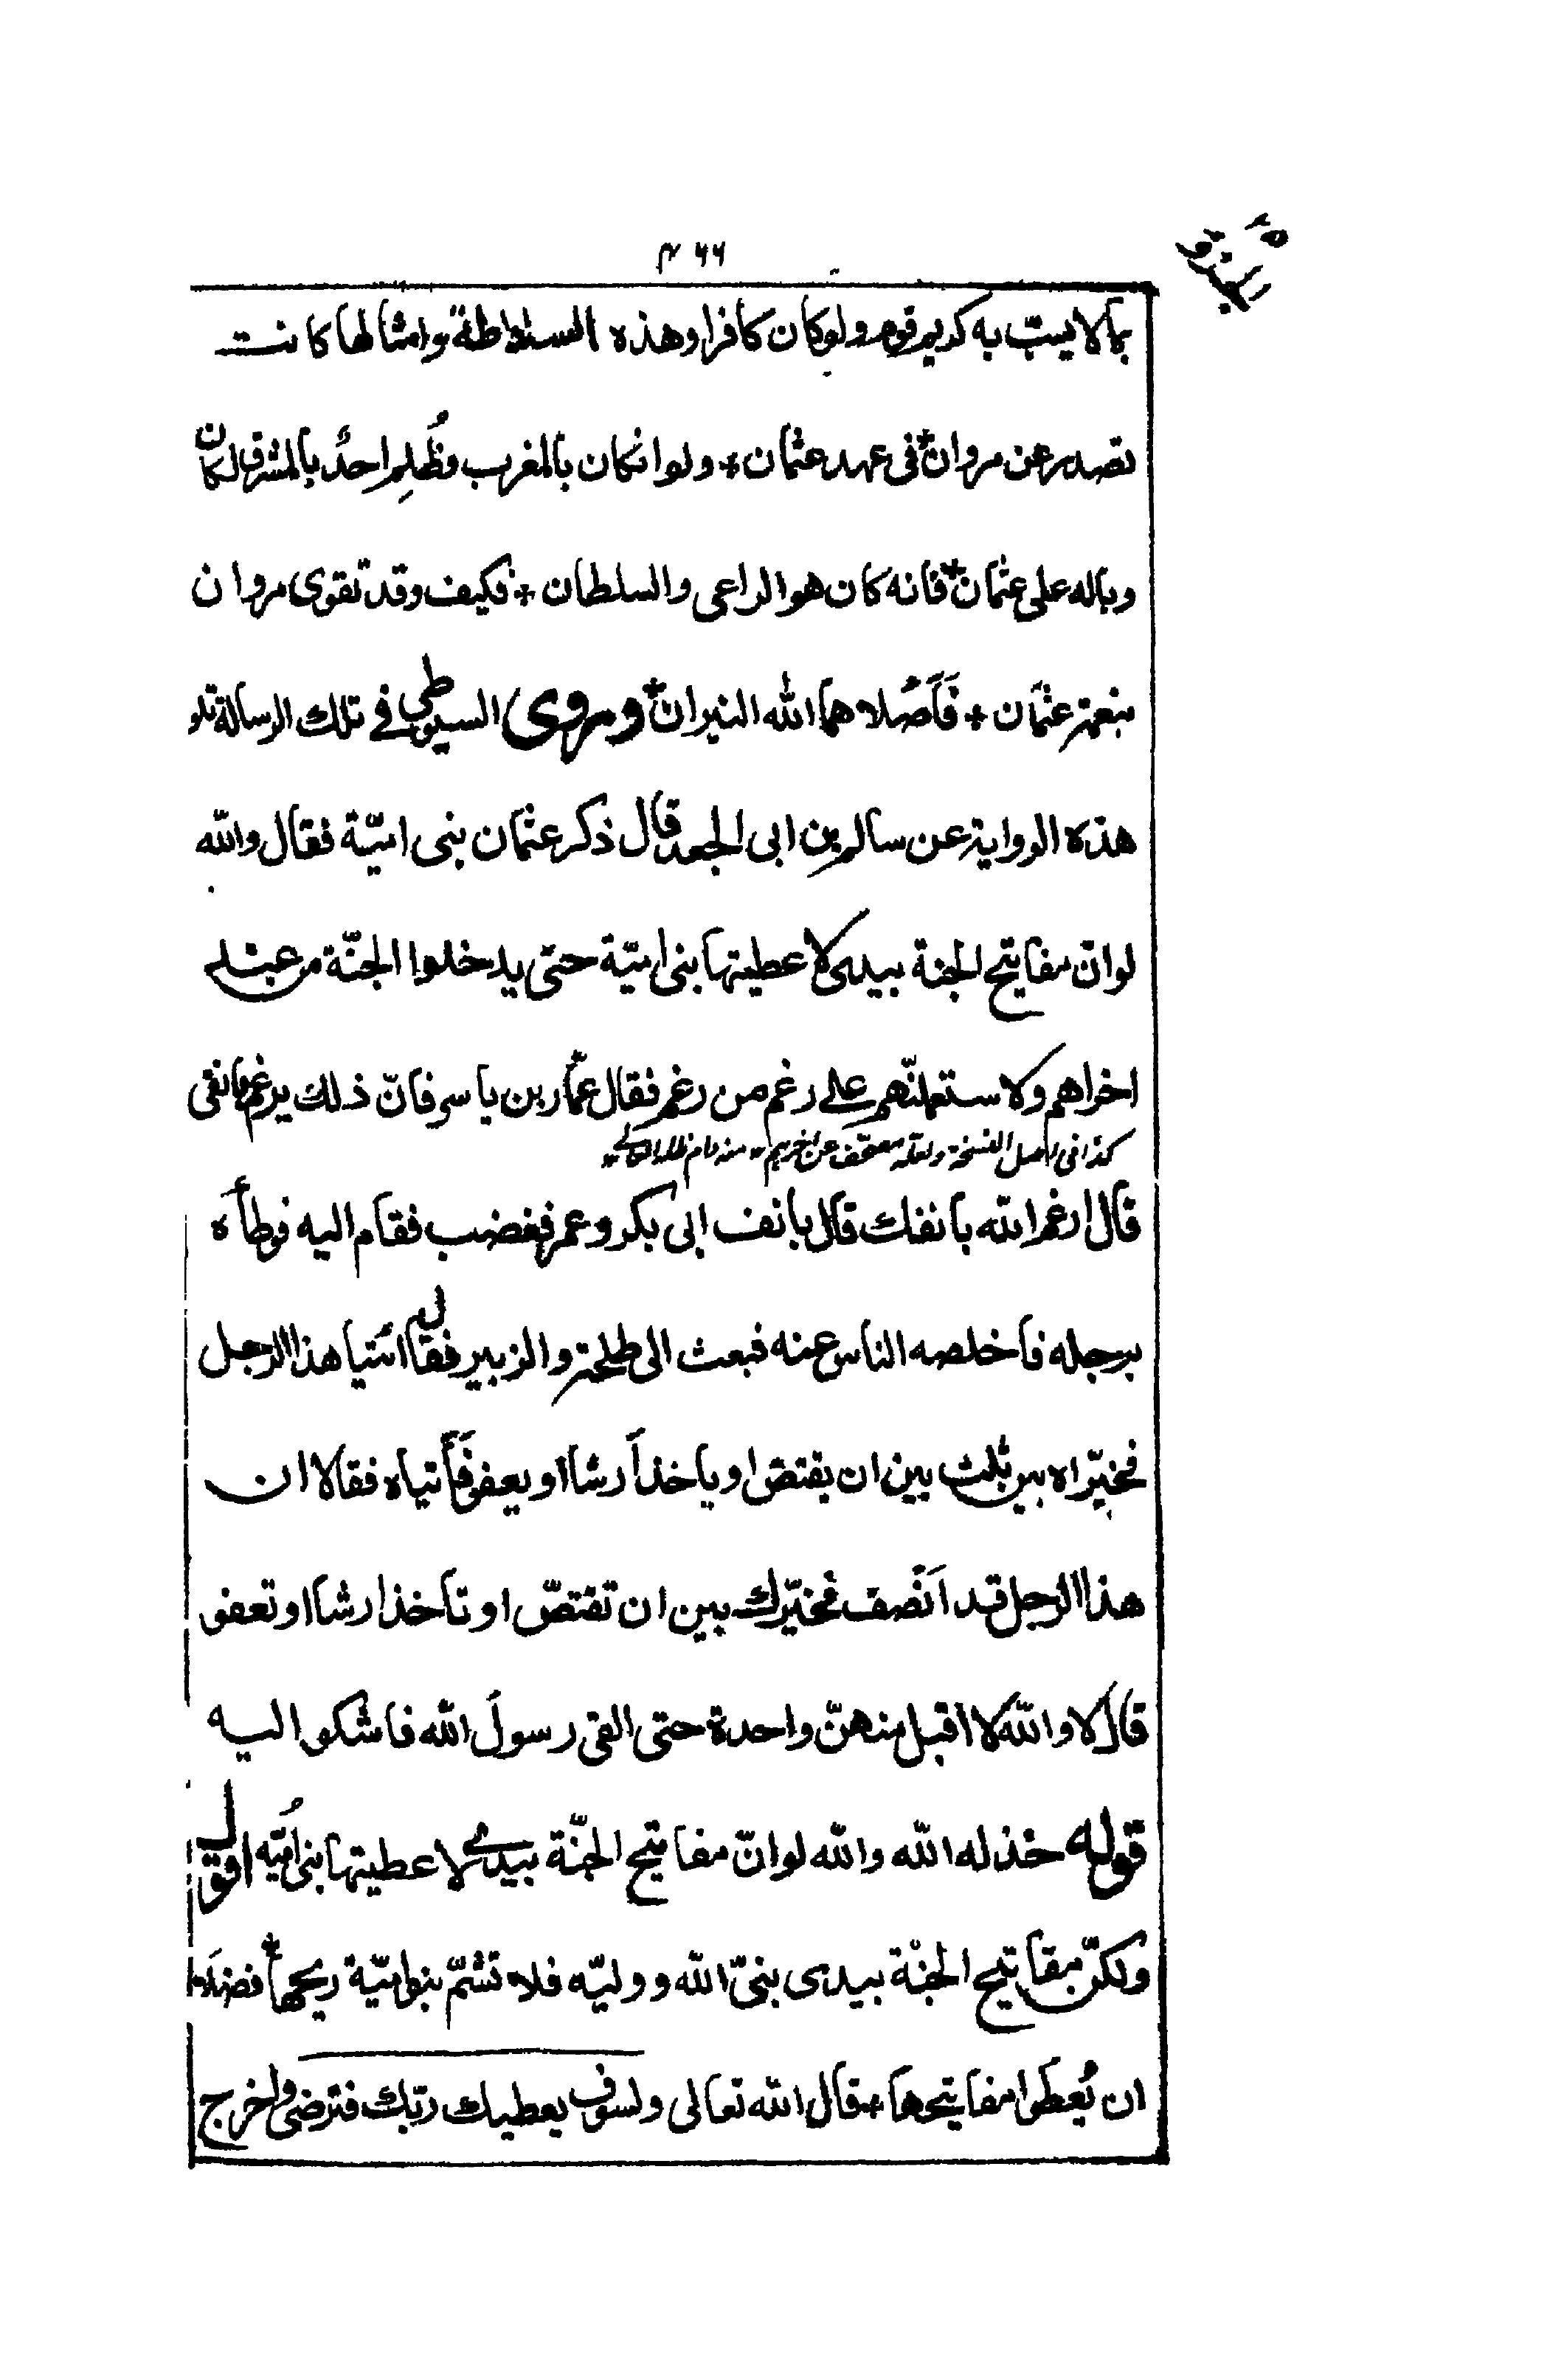 ٤٦٦
بما لا يسبّ به كريم قوم ولو كان كافرا وهذه السلاطة وامثالها كانت
تصدر عن مروان * فى عهد عثمان * ولو انكان بالمغرب وظُلِم احدٌ بالمشرق لكان
وباله على عثمان * فانه كان هو الراعى والسلطان * فكيف وقد تقوى مروان
بنعمة عثمان * فَأَصْلاهما الله النيران * وروى السيوطى فى تلك الرسالة تلو
هذه الرواية عن سالم بن ابى الجعد قال ذكر عثمان بنى اميّة فقال والله
لو انّ مفاتيح الجنة بيدى لاعطيتها بنى اميّة حتى يدخلوا الجنّة من عند
اخراهم ولاستعملنّهم على رغم من رغم فقال عمّار بن ياسر فانّ ذلك يرغم بانفى
كذا فى اصل النسخة ولعله مصحّف عن اخريهم * منه دام ظله العالى *
قال ارغم الله بانفك قال بانف ابى بكر وعمر فغضب فقام اليه فوطأه
برجله فاخلصه الناس عنه فبعث الى طلحة والزبير فقال ائتيا هذا الرجل
فخيّراه بين ثلث بين ان يقتصّ او ياخذ أرشا او يعفو فَأَتياه فقالا ان
هذا الرجل قد اَنْصف فخيّرك بين ان تقتصّ او تاخذ ارشا او تعفو
قال لا والله لا اقبل منهنّ واحدة حتى القى رسولَ الله فاشكو اليه
قوله خذله الله والله لو انّ مفاتيح الجنّة بيدى لاعطيتها بنى اُميّه اقول
ولكنّ مفاتيح الجنّة بيدى نبىّ الله ووليّه فلا تشمّ بنو اميّة ريحها * فضلا
ان تُعطَوا مفاتيحها * قال الله تعالى ولسوف يعطيك ربّك فترضى واخرج